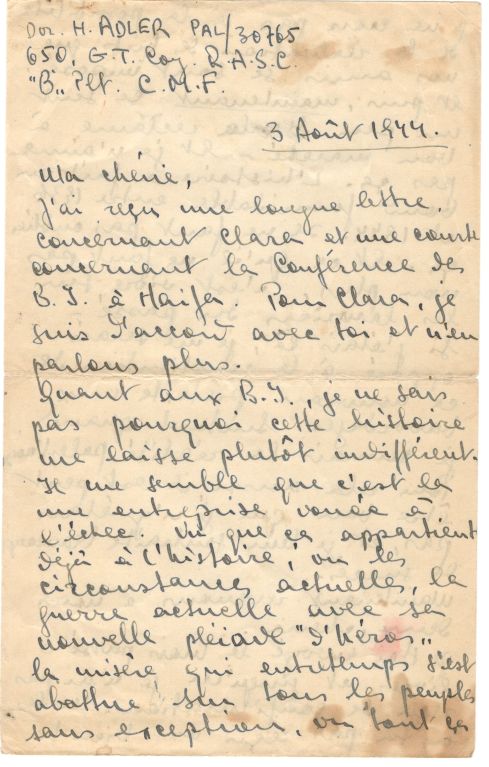 Dvr. H. ADLER PAL/30765
650, G.T. Coy. R.A.S.C.
"B" Plt. C.M.F.
3 Août 1944.
Ma chérie,
J'ai reçu une longue lettre
concernant Clara et une courte
concernant la Conférence des
B.I. à Haifa. Pour Clara, je
suis d'accord avec toi et n'en
parlons plus.
Quant aux B.I., je ne sais
pas pourquoi cette histoire
me laisse plutôt indifférent.
Il me semble que c'est là
une entreprise vouée à
l'échec vu que ça appartient
déjà à l'histoire, vu les
circonstances actuelles, la
guerre actuelle avec sa
nouvelle pléiade "d'héros"
la misère qui entretemps s'est
abattue sur tous les peuples
sans exception, vu tout ça